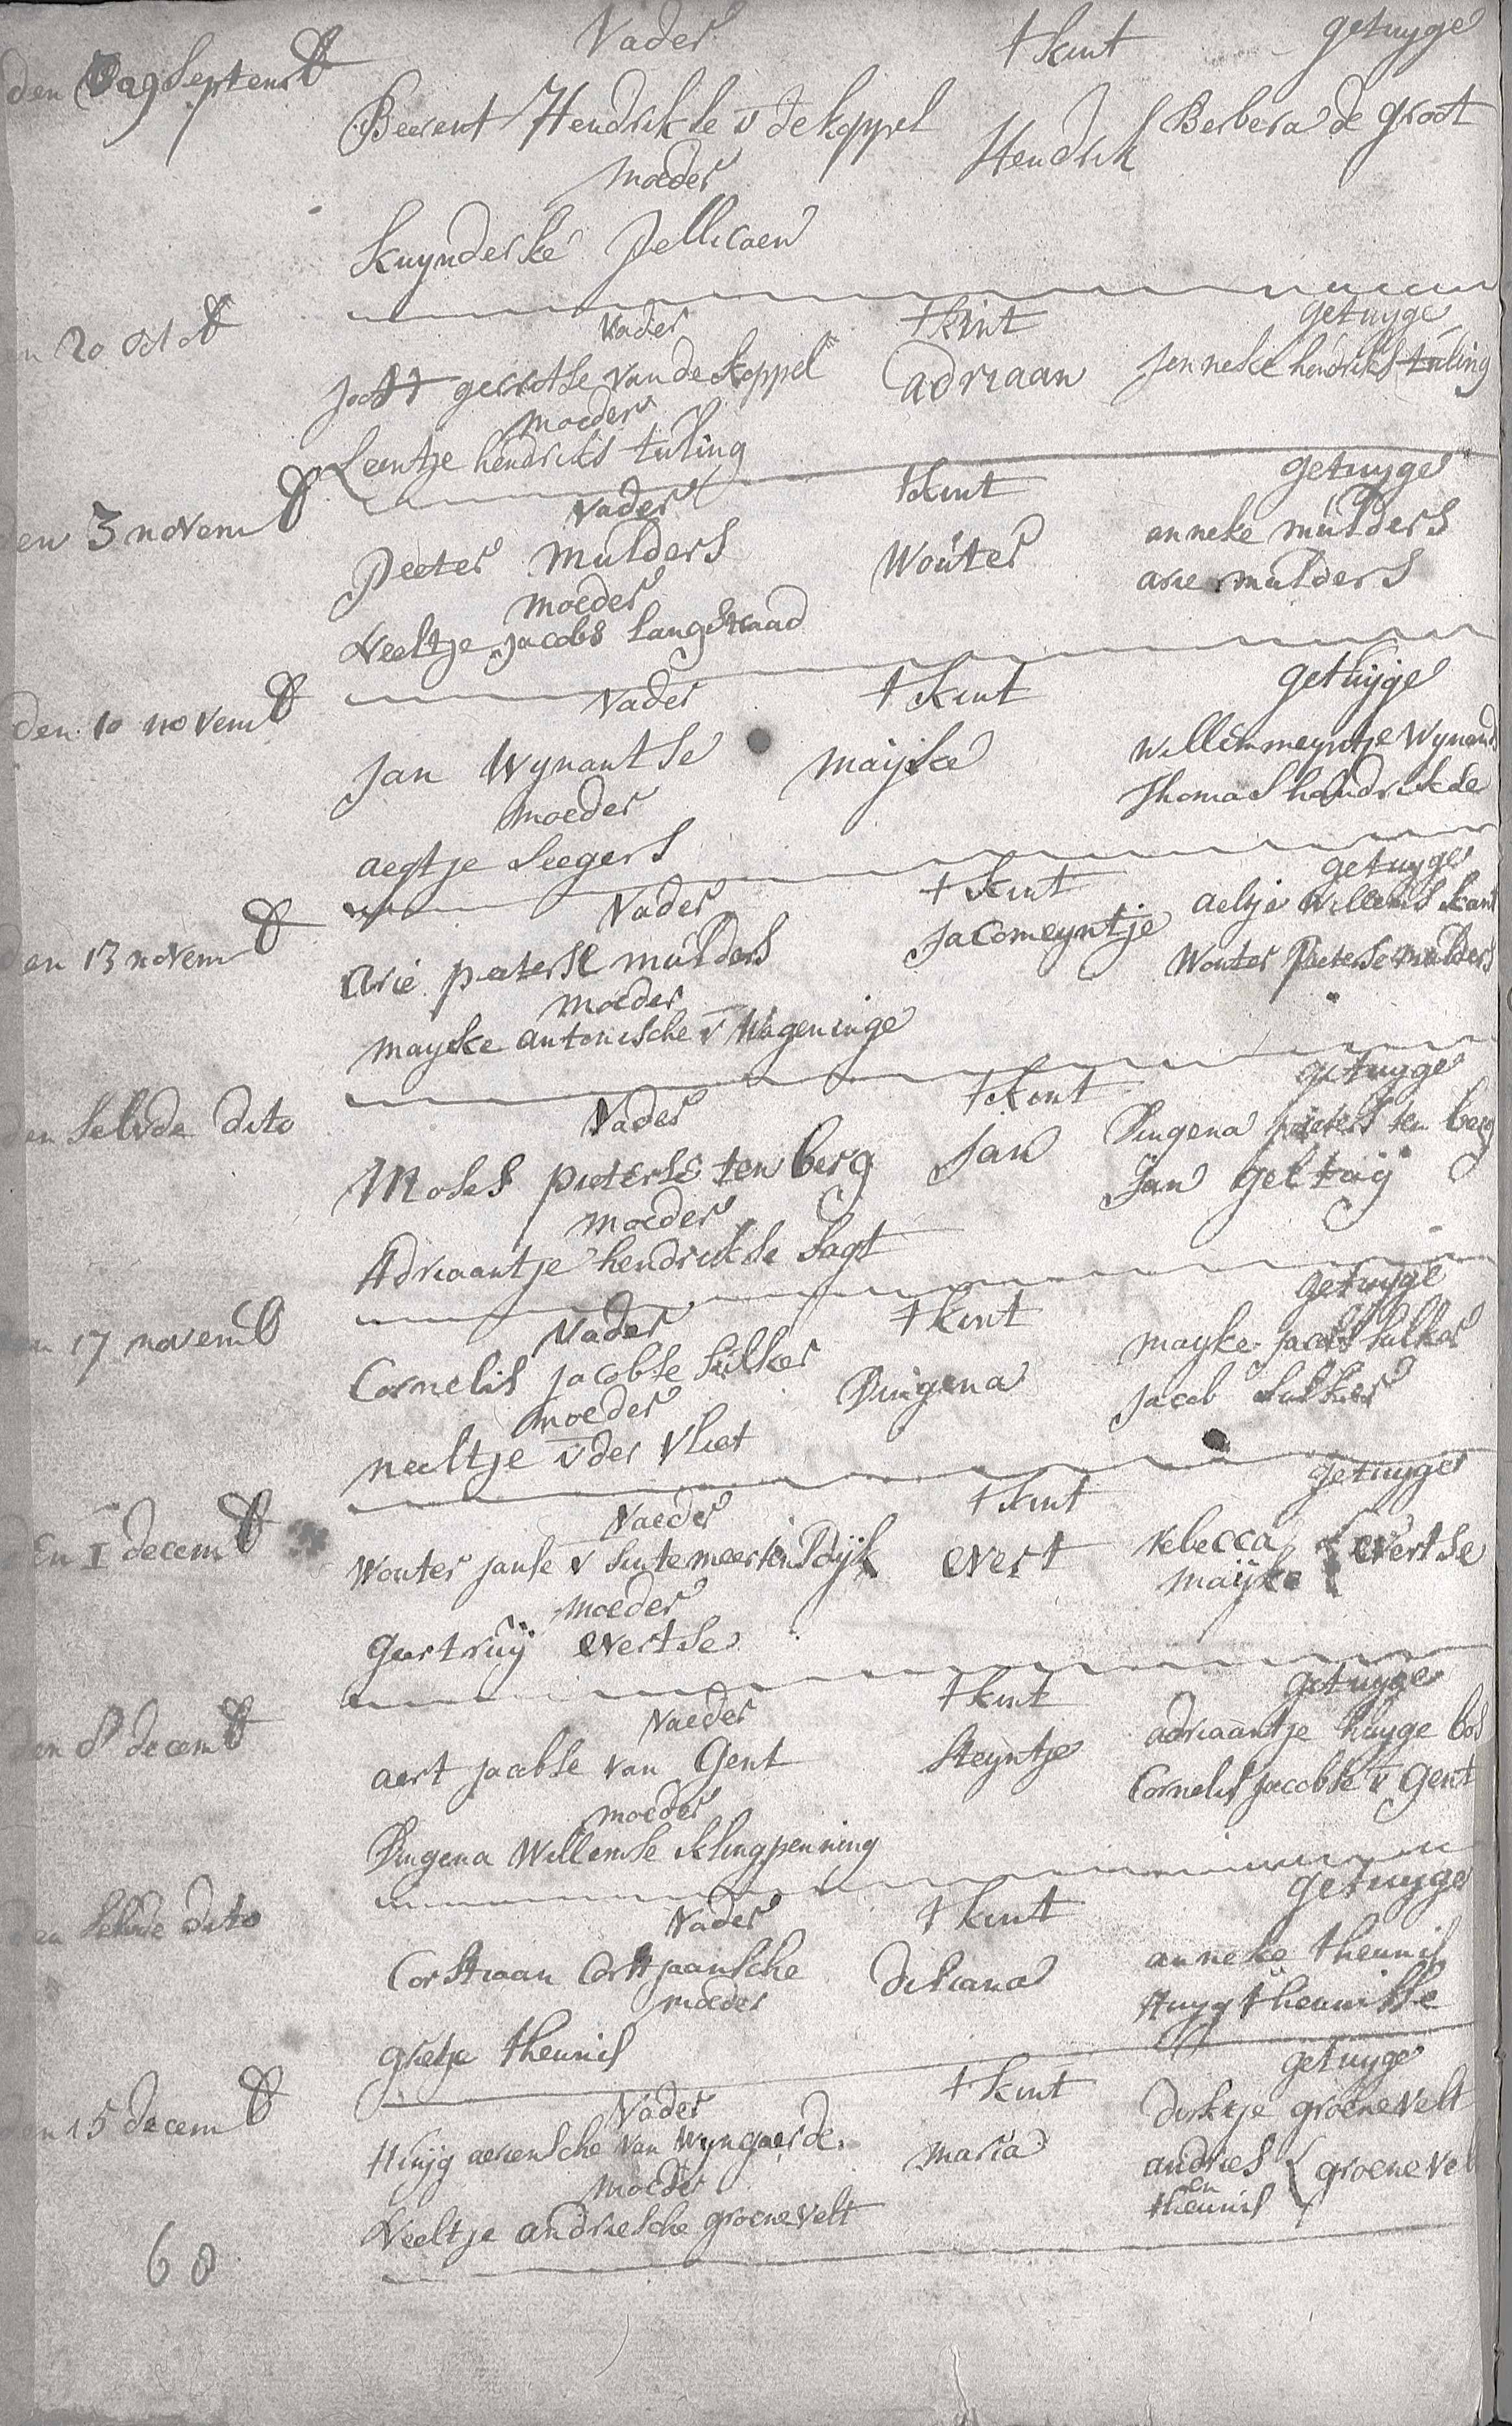 Vader t kint getuyge
den 29 Septemb
Beerent Hendrikse v de koppel Hendrik Berbera de groot
moeder
kuynderke Pellicaen
en 20 octob
Vader t kint getuyge
Joost gerritse van de koppel adriaan Jenneke hendriks tuling
moeder
Leentje hendriks tuling
den 3 novemb
Vader t kint getuyge
Peeter Mulders Wouter anneke mulders
arie mulders
moeder
Neeltje jacobs langstraad
den 10 novemb
Vader t kint getuyge
Jan Wynantse mayke Willemmeyntje Wynands
Thomas handrikse
moeder
aegtje Seegers
den 13 novemb
Vader t kint getuyge
arie peeterse mulders Jacomeyntje aeltje Willems kant
Wouter Peeterse mulders
moeder
mayke antonische v Wageninge
den Selvde dito
Vader t kint getuyge
Moses pieterse ten berg Jan Dingena pieters ten berg
Jan
moeder
Adriaantje hendrikse Sagt
en 17 novemb
Vader t kint getuyge
Cornelis jacobse Sulker Dingena mayke jacobs Sulker
Jacob Sulker
moeder
neeltje v der Vliet
den I decemb
Vaeder t kint getuyger
Wouter janse v Sintemeertensdijk evert rebecca
mayke { evertse
moeder
geertruij evertse
den 8 decemb
Vaeder t kint getuyge
aert jacobse van Gent Steyntje adriaantje huyge bos
Cornelis jacobse v Gent
moeder
Dingena Willemse klingpenning
en Selvde dito
Vader t kint getuyge
Corstiaan Corstjaansche anneke theunis
Huyg theunisse
moeder
grietje theunis
den 15 decemb
Vader t kint getuyge
Huijg aeriensche van Wyngaerde maria dirkje groenevelt
andries
en
theunis { groenevel
moeder
Neeltje andriesche groenevelt
60